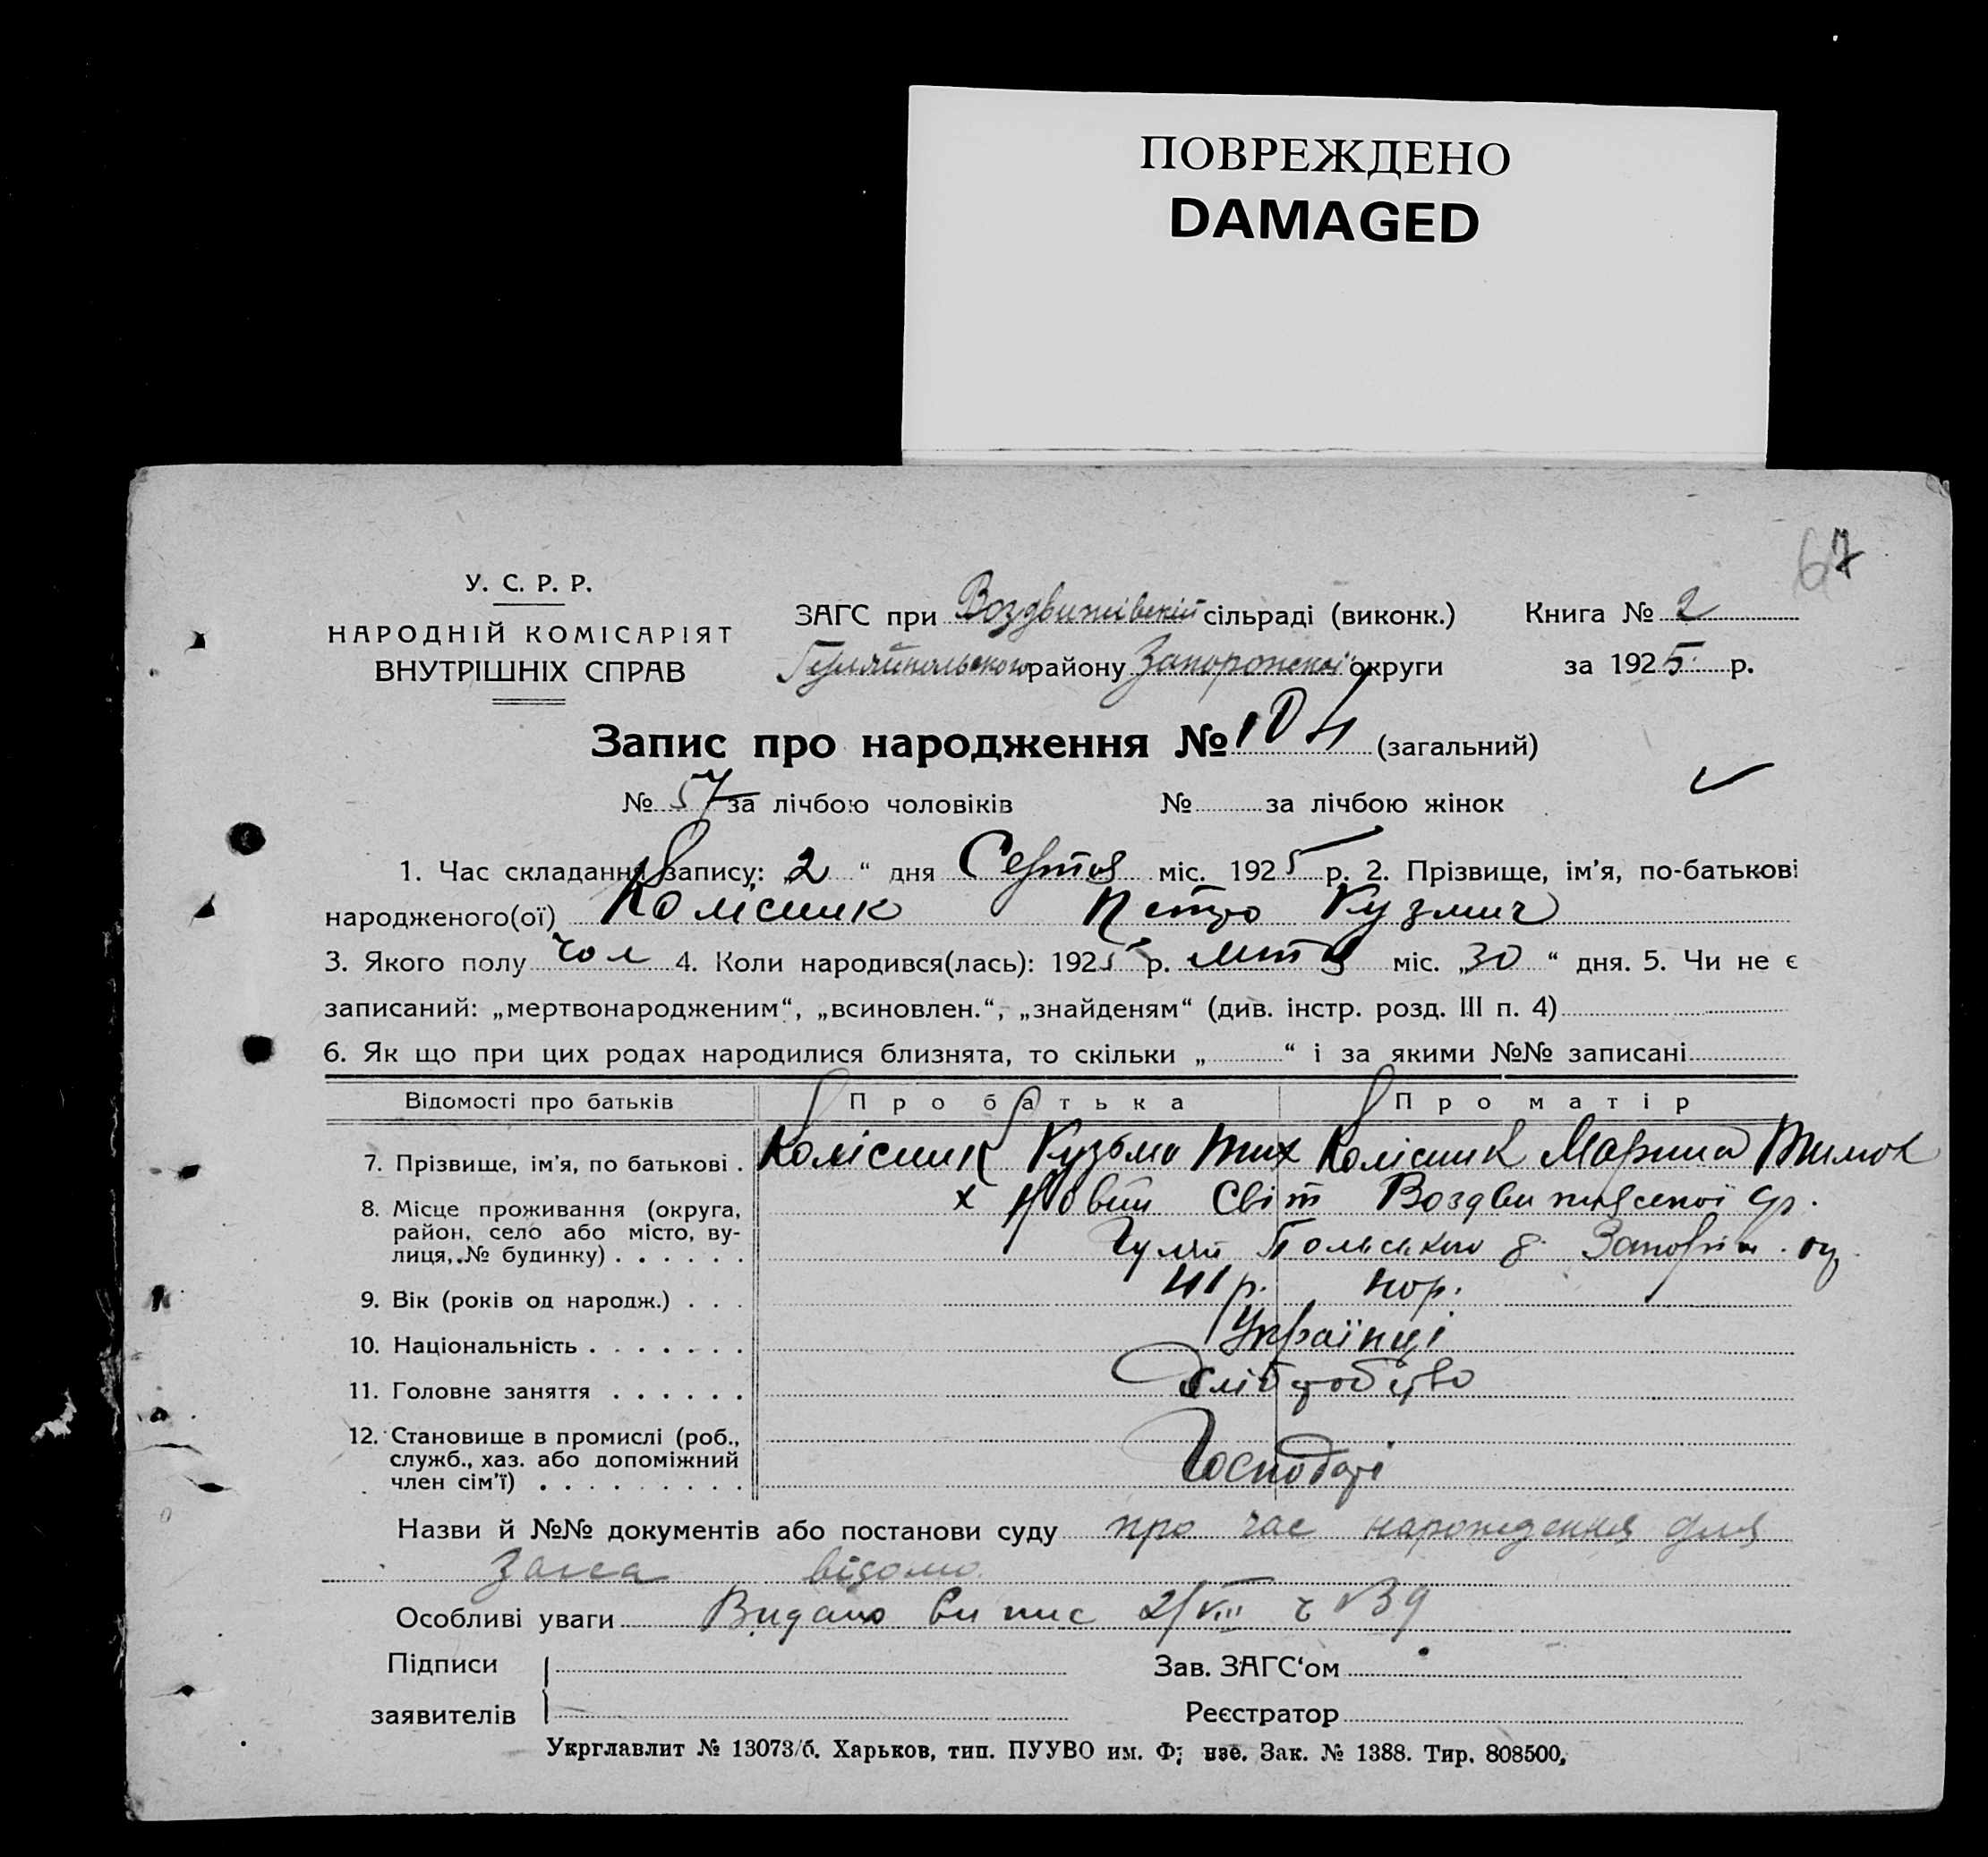 ПОВРЕЖДЕНО
DAMAGED
67
У. С. Р. Р.
НАРОДНІЙ КОМІСАРІЯТ
ВНУТРІШНІХ СПРАВ
ЗАГС при Воздвижівскій сільраді (виконк.) Книга № 2
Гуляйпольського району Запорожської округи за 1925 р.
Запис про народження № 104 (загальний)
№ 57 за лічбою чоловіків № за лічбою жінок
1. Час складання запису: „2“ дня міс. 1925 р. 2. Прізвище, ім'я, по-батькові
народженого(ої) Колісник Петро Кузмич
3. Якого полу чол 4. Коли народився(лась): 1925 р. міс. „30“ дня. 5. Чи не є
записаний: „мертвонародженим“, „всиновлен.“, „знайденям“ (див. інстр. розд. III п. 4)
6. Як що при цих родах народилися близнята, то скільки „ “ і за якими №№ записані
Відомості про батьків Про батька Про матір
7. Прізвище, ім'я, по батькові . Колісник Кузьма Тих Колісник Марина Тимох
8. Місце проживання (округа, х Новий Світ
район, село або місто, ву-
лиця, № будинку) . . . . . . Гуляй Польського
9. Вік (років од народж.) . . . 41 р.
10. Національність . . . . . . . Українці
11. Головне заняття . . . . . . Хліборобство
12. Становище в промислі (роб.,
служб., хаз. або допоміжний Господарі
член сім'ї) . . . . . . . . .
Назви й №№ документів або постанови суду про час нарождення для
Загса відомо
Особливі уваги Видано випис 2/VIII
Підписи Зав. ЗАГС‘ом
заявителів Реєстратор
Укрглавлит № 13073/б. Харьков, тип. ПУУВО им. Зак. № 1388. Тир. 808500.